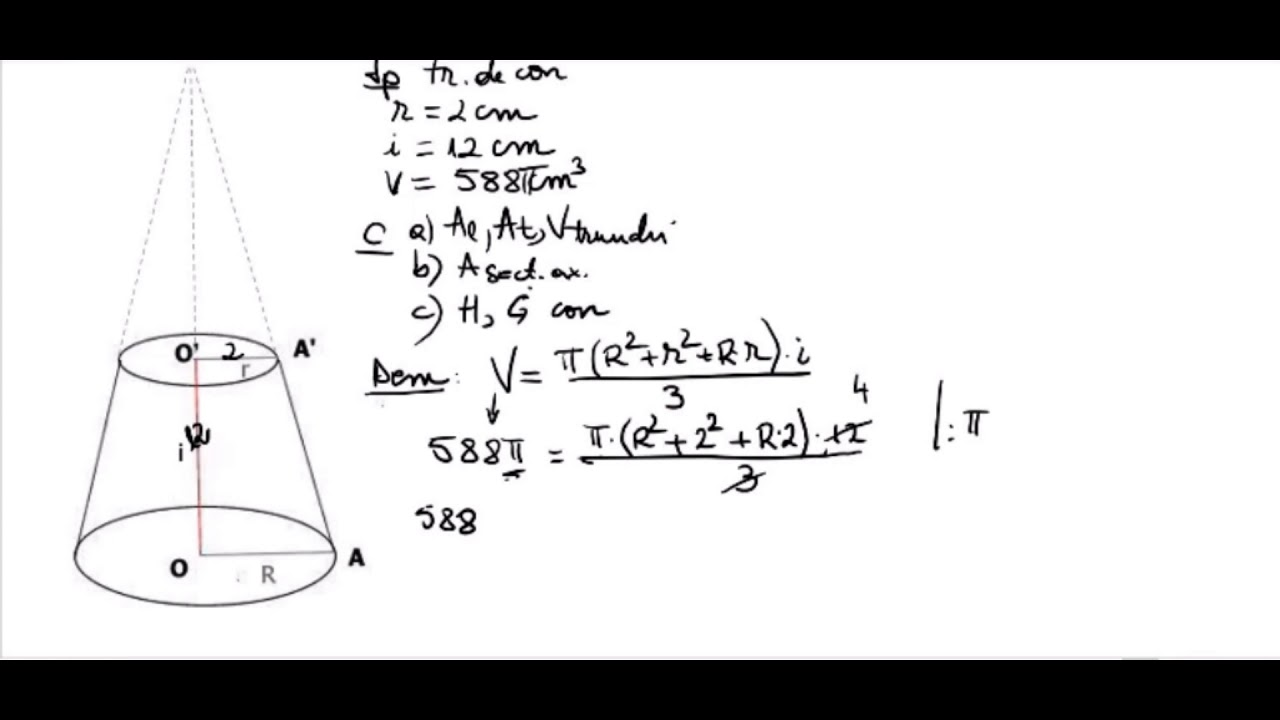 Ip tr. de con
r = 2 cm
i = 12 cm
V = 588π cm³
C a) Al, At, Vtrunchi
b) A sect. ax.
c) H, G con
Dem: V = π(R² + r² + R·r)·i / 3
588π = π·(R² + 2² + R·2)·12 / 3 |:π
4
588
O' 2 A'
r
i 12
O R A